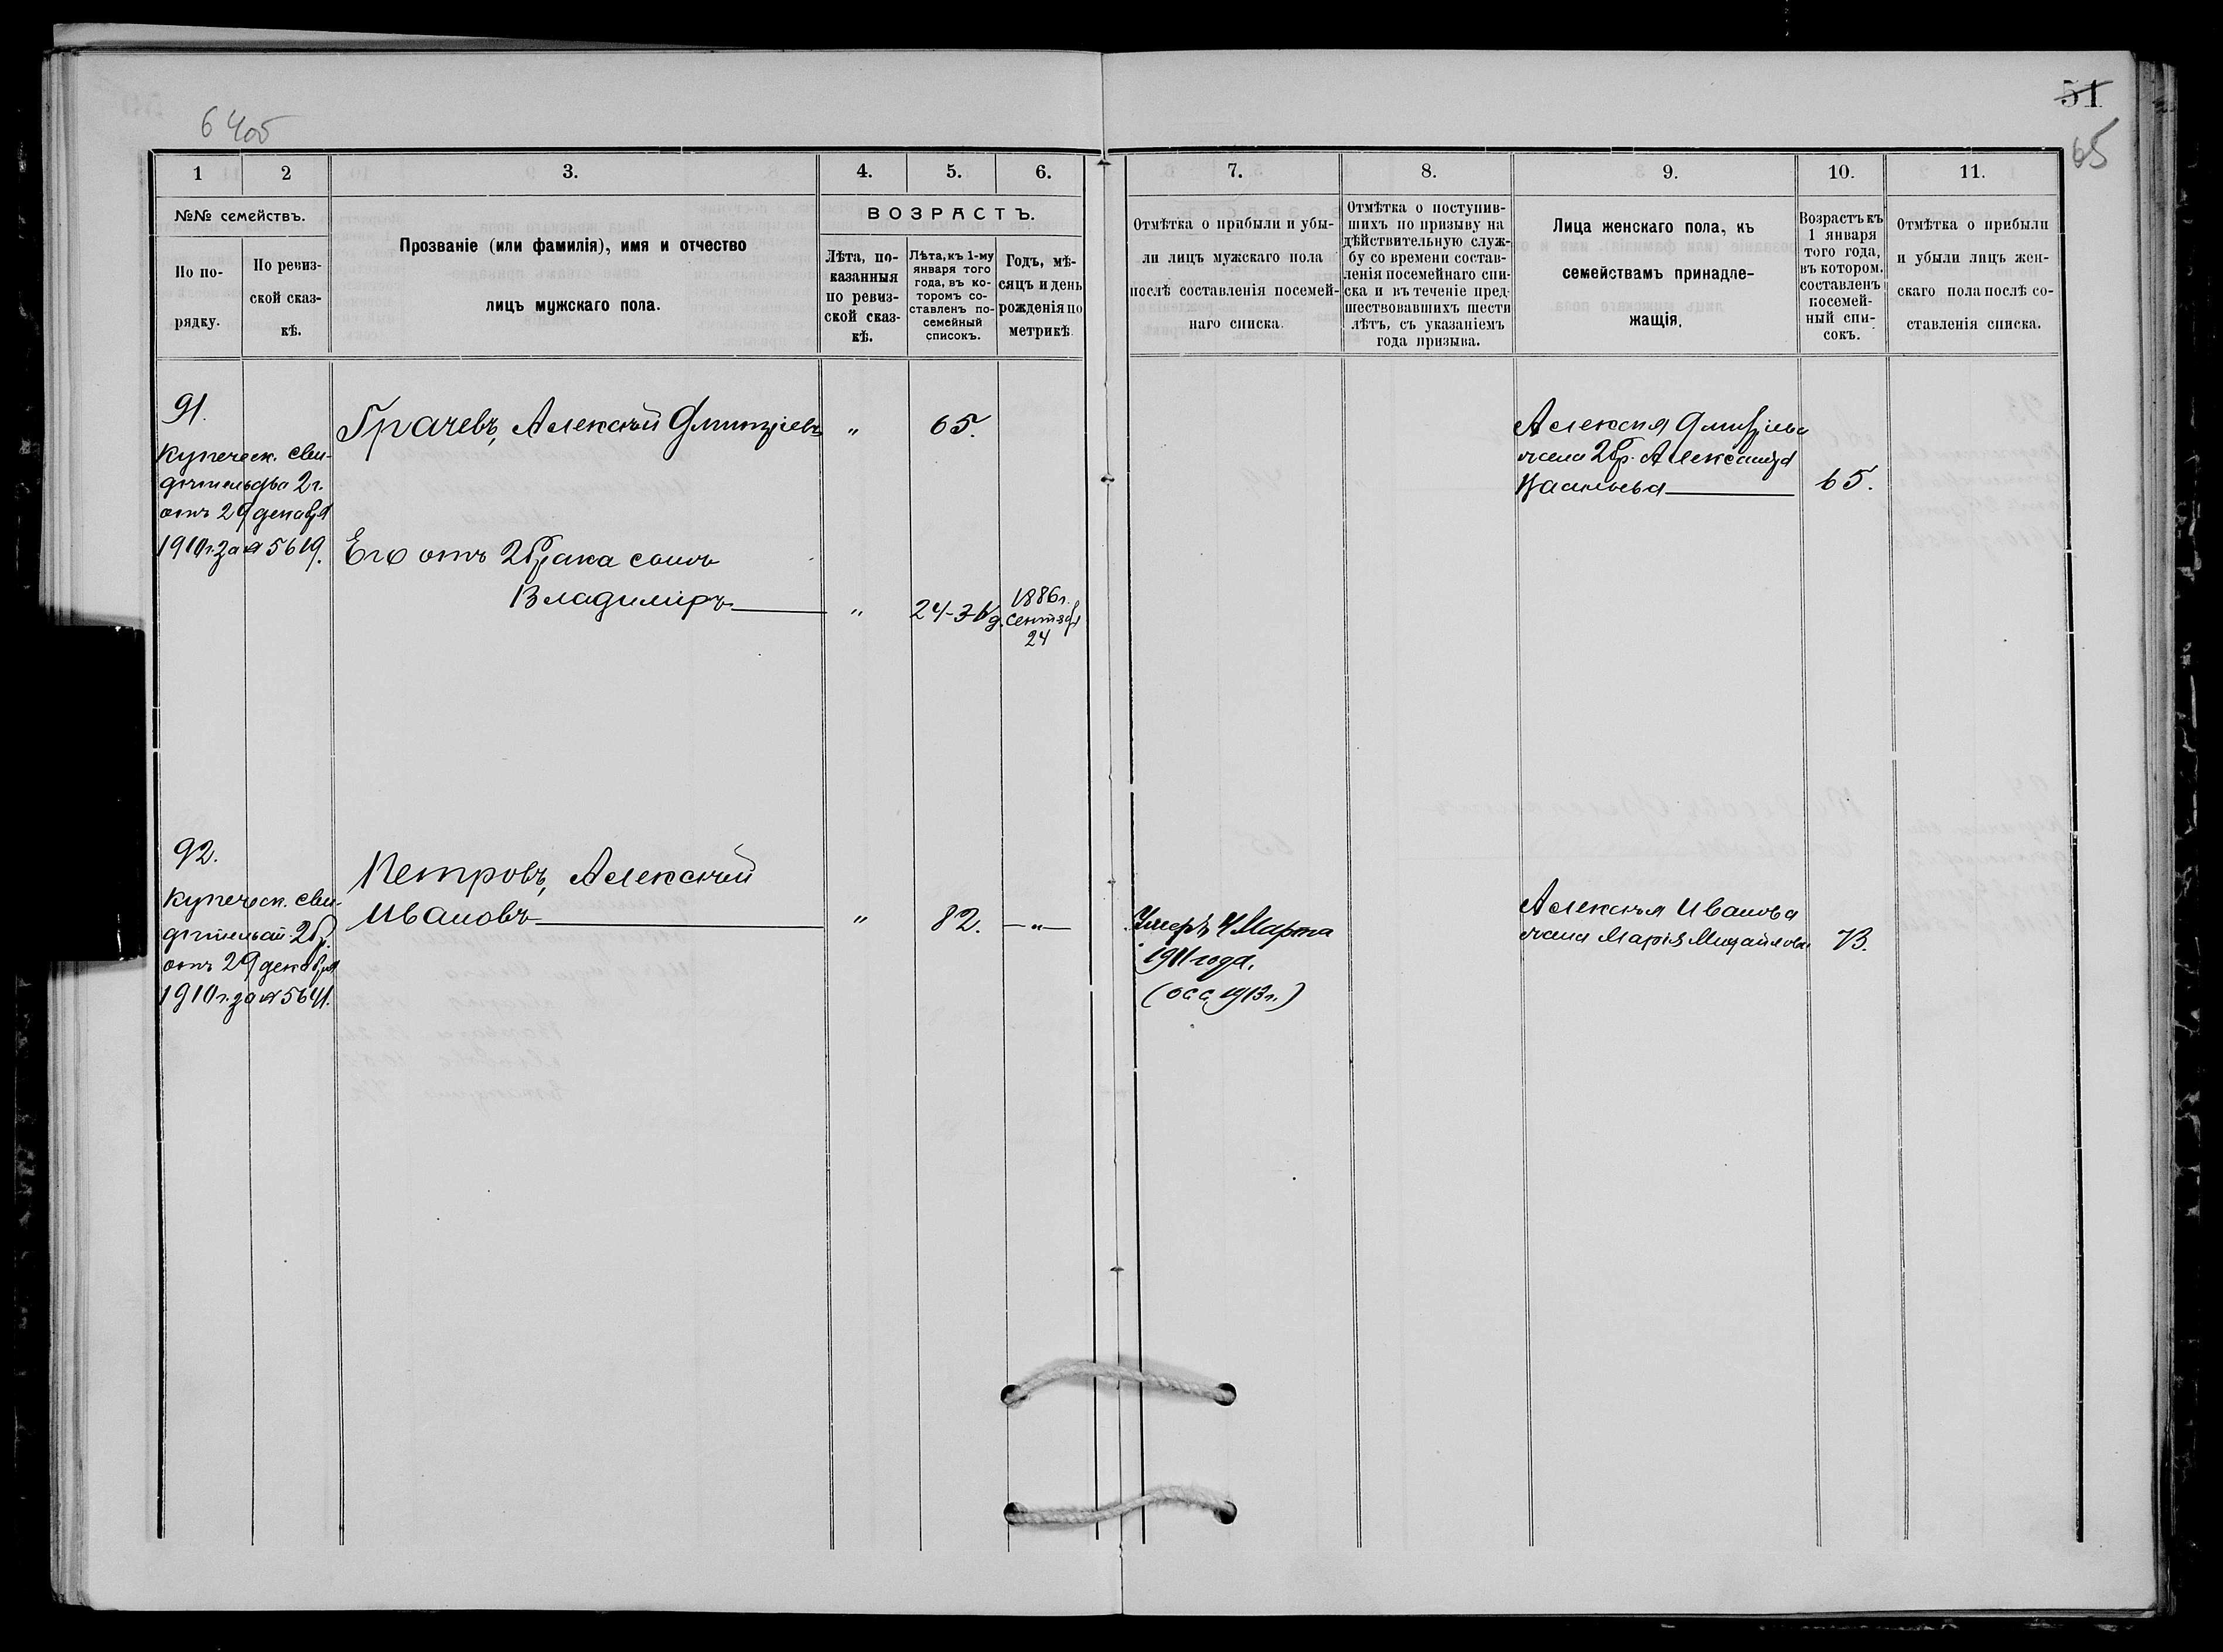 51
65
6 405
1
2
3.
4.
5.
6.
7.
8.
9.
10.
11.
№№ семействъ.
По по-
рядку.
По ревиз-
ской сказ-
кѣ.
Прозваніе (или фамилія), имя и отчество
лицъ мужскаго пола.
ВОЗРАСТЪ.
Лѣта, по-
казанныя
по ревиз-
ской сказ-
кѣ.
Лѣта, къ 1-му
января того
года, въ ко-
торомъ со-
ставленъ по-
семейный
списокъ.
Годъ, мѣ-
сяцъ и день
рожденія по
метрикѣ.
Отмѣтка о прибыли и убы-
ли лицъ мужскаго пола
послѣ составленія посемей-
наго списка.
Отмѣтка о поступив-
шихъ по призыву на
дѣйствительную служ-
бу со времени состав-
ленія посемейнаго спи-
ска и въ теченіе пред-
шествовавшихъ шести
лѣтъ, съ указаніемъ
года призыва.
Лица женскаго пола, къ
семействамъ принадле-
жащія.
Возрастъ къ
1 января
того года,
въ котором.
составленъ
посемей-
ный спи-
сокъ.
Отмѣтка о прибыли
и убыли лицъ жен-
скаго пола послѣ со-
ставленія списка.
91.
Купеческ. сви-
дѣтельства 2 г.
отъ 29 декабря
1910 г. за № 5619.
Грачевъ, Алексѣй Дмитріевъ
"
65.
Алексѣя Дмитріева
жена 2 бр. Александра
Васильева
65.
Его отъ 2 брака сынъ
Владиміръ
"
24-3
1886 г.
Сентября
24
92.
Купеческ. сви-
дѣтельст. 2 г.
отъ 29 декабря
1910 г. за № 5641.
Петровъ, Алексѣй
Ивановъ
"
82.
—"—
Умеръ 4 Марта
1911 года.
1913 г.)
Алексѣя Иванова
жена Марія Михайлова
73.